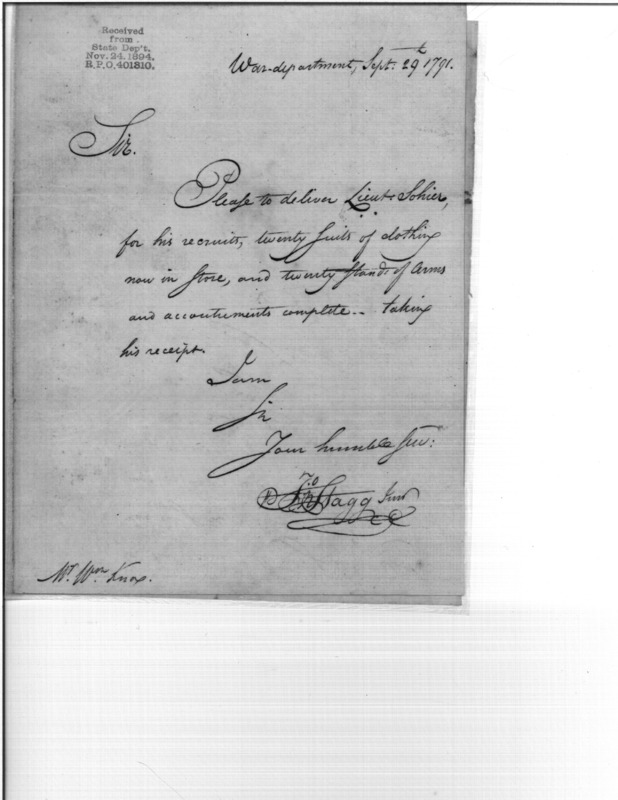 Received
from
State Dep't.
Nov. 24, 1894.
R.P.O. 401810.
War-department, Sept. 29th 1791.
Sir.
Please to deliver Lieut. Sohier,
for his recruits, twenty suits of clothing
now in store, and twenty stands of arms
and accoutrements complete - taking
his receipt.
I am
Sir
Your humble Serv:
Jno Stagg Junr
Mr. Wm Knox.